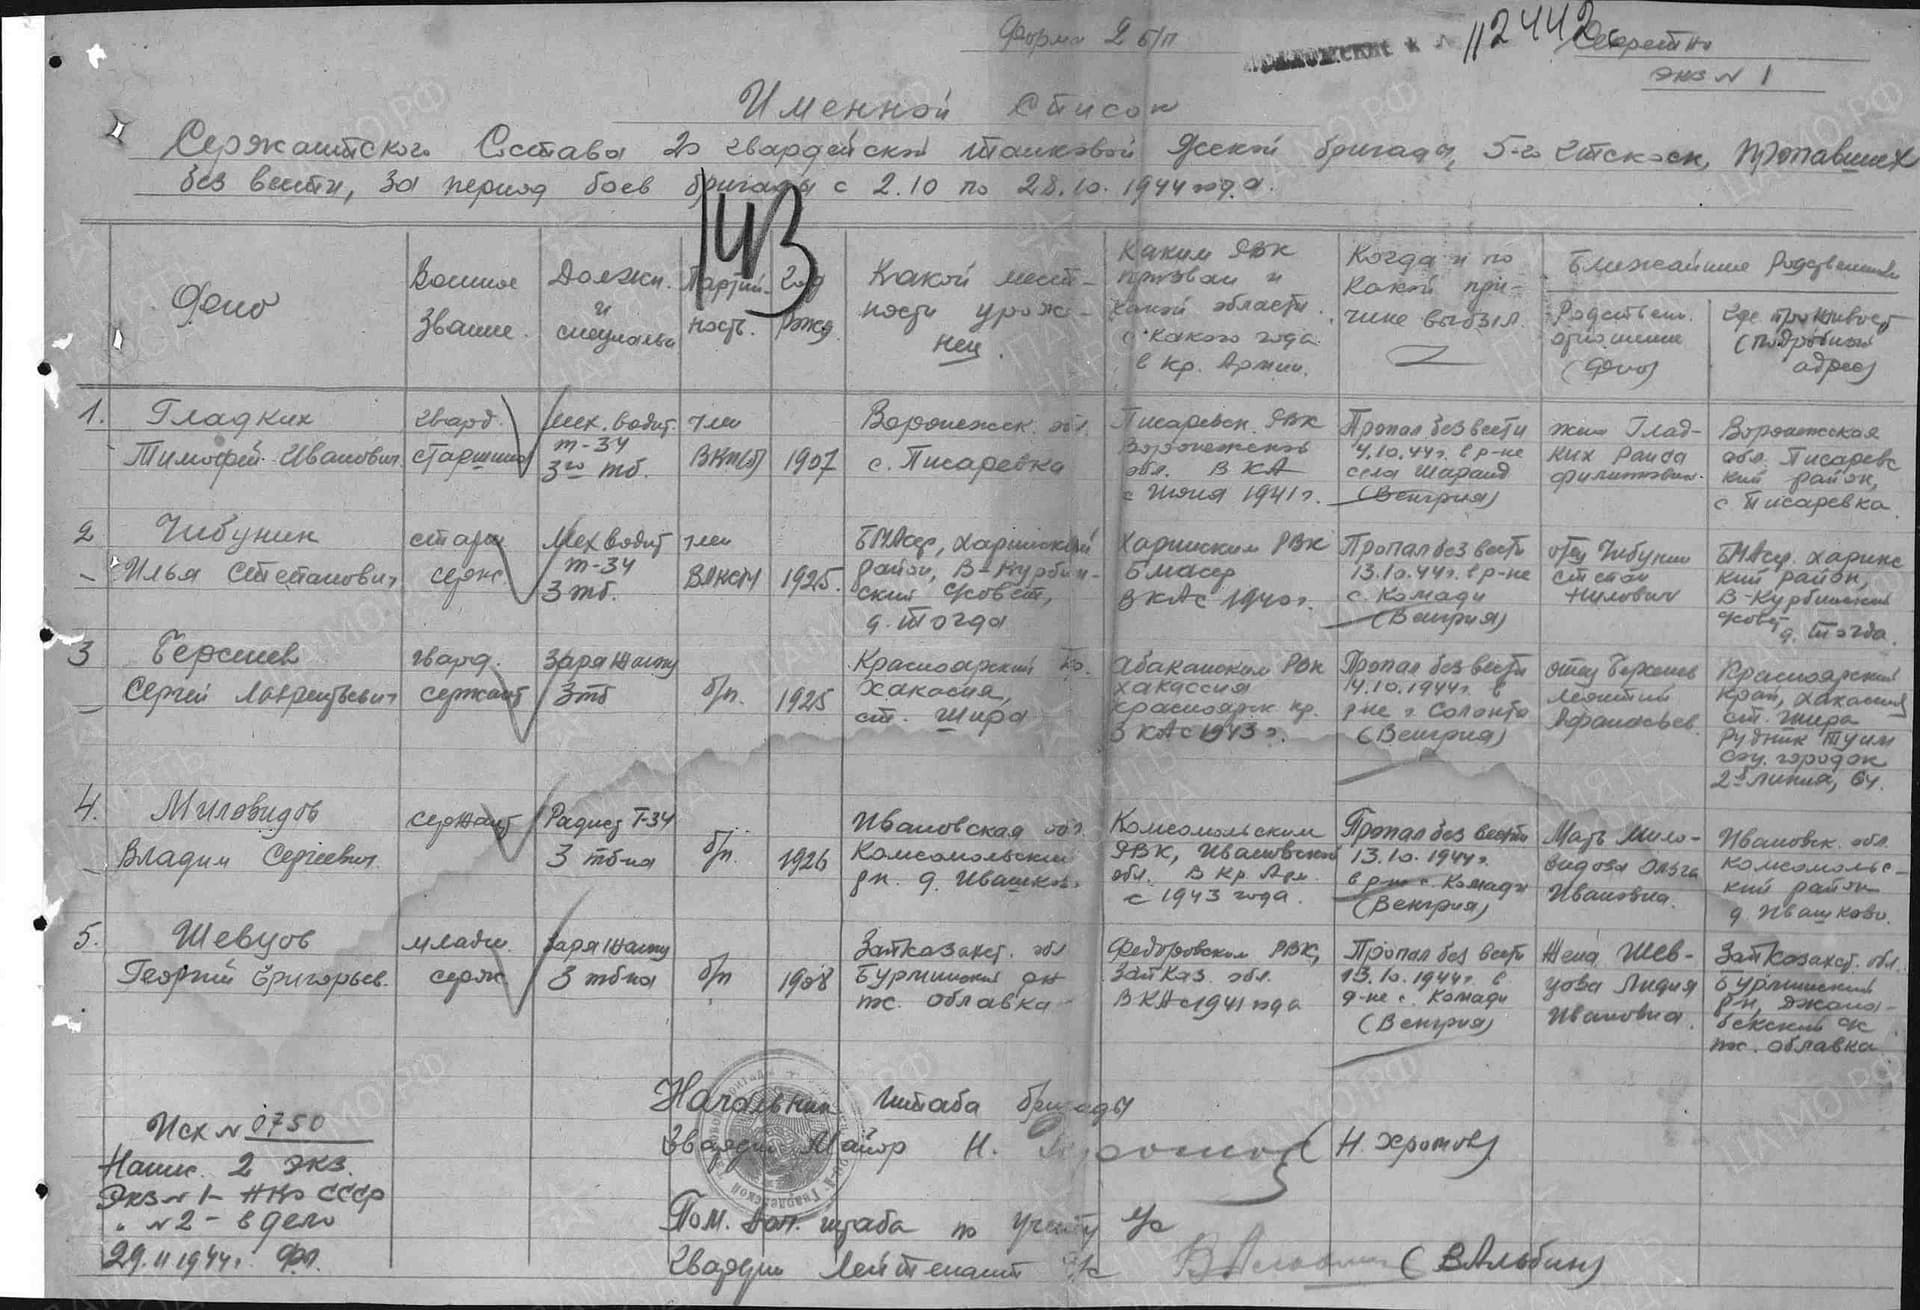 Форма 2 б/п
112442с
Секретно
экз № 1
Именной список
Сержантского Состава 20 гвардейской танковой Ясской бригады, 5-го гтскоск, пропавших
без вести, за период боев бригады с 2.10 по 28.10.1944 года.
143
Фио
Военное звание.
Должн. и специальн
Партий-ность.
Год рожд
Какой мест-ности уроже-нец.
Каким РВК призван и какой области с какого года в Кр. Армии.
Когда и по какой при-чине выбыл.
Ближайшие родственники
Родствен. отношение (Фио)
Где проживает (подробный адрес)
1. Гладких Тимофей Иванович
гвард. старшина
мех. водит. т-34 3го тб.
член ВКП(б)
1907
Воронежск. обл. с. Писаревка
Писаревск. РВК Воронежской обл. В КА с Июня 1941 г.
Пропал без вести 4.10.44 г. в р-не села Шаранд (Венгрия)
жена Глад-ких Раиса филиповн.
Воронежская обл. Писаревс кий район, с Писаревка.
2 Чибунин Илья Степанович
старш серж.
Мех водит т-34 3 тб.
член ВЛКСМ
1925
БМАсср, Харинский район, В-Курбин-ский с/совет, д. Тогда
Харинским РВК Бмасср В КА с 1940 г.
Пропал без вести 13.10.44 г. в р-не с. Комади (Венгрия)
отец Чибунин степан Нилович
БМАсср. Харинс кий район, В-Курбинский с/совет д. Тогда.
3 Бержнев Сергей Лаврентьевич
гвард. сержант
Заряжающ 3 тб
б/п.
1925
Красноярский кр. Хакасия, ст. Шира
Абаканском РВК Хакассия красноярск кр. В КА с 1943 г.
Пропал без вести 14.10.1944 г. в р-не г Солонта (Венгрия)
отец Леонтий Афанасьев.
Красноярский край, Хакасия ст. Шира рудник Туим соц. городок 2я линия, 64.
4. Миловидов Владим Сергеевич
сержант
Радист Т-34 3 тб-на
б/п.
1926
Ивановская обл. Комсомольский рн. д. Ивашков.
Комсомольским РВК, Ивановской обл. В Кр. Арм. с 1943 года.
Пропал без вести 13.10.1944 г. в р-не с. Комади (Венгрия)
Мать Мило-видова Ольга Ивановна.
Ивановск. обл. комсомольс-кий район д. Ивашково.
5. Шевцов Георгий Григорьев.
младш. серж
Заряжающ 3 тб-на
б/п
1908
Запказахст. обл Бурлинский рн пос. облавка
Федоровском РВК, Запказ. обл. В КА с 1941 года
Пропал без вести 13.10.1944 г. в р-не с. Комади (Венгрия)
Жена Шев-цова Лидия Ивановна.
Запказахст. обл. Бурлинский р-н, джана-бекский с/с пос. облавка
Начальник штаба бригады
Гвардии Майор Н. Хромов (Н. Хромов)
Пом. нач. штаба по учету
Гвардии лейтенант а/с (В Альбин)
Исх № 0750
Напис. 2 экз.
Экз № 1 - НКО СССР
" № 2 - в дело
29.11.1944 г.